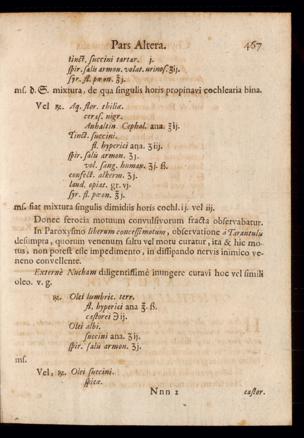 Pars Altera. 467
tinct. succini tartar. j.
spir. salis armon. volat. urinos. ʒij.
syr. fl. pæon. ℥j.
ms. d. S. mixtura, de qua singulis horis propinavi cochlearia bina.
Vel ℞. Aq. flor. thiliæ.
ceras. nigr.
Anhaltin. Cephal. ana. ℥ij.
Tinct. succini.
fl. hyperici ana. ʒiij.
spir. salis armon. ʒj.
vol. sang. human. ʒj. ß.
confect. alkerm. ʒj.
laud. opiat. gr. vj.
syr. fl. pæon. ℥j.
ms. fiat mixtura singulis dimidiis horis cochl. ij. vel iij.
Donec ferocia motuum convulsivorum fracta observabatur.
In Paroxysmo liberum concessi motum, observatione à Tarantulâ
desumpta, quorum venenum saltu vel motu curatur, ita & hic mo-
tus, non potest esse impedimento, in dissipando nervis inimico ve-
neno convellente.
Externè Nucham diligentissimè inungere curavi hoc vel simili
oleo. v. g.
℞. Olei lumbric. terr.
fl. hyperici ana ℥. ß.
castorei ℈ij.
Olei albi.
succini ana. ʒij.
spir. salis armon. ʒj.
ms.
Vel, ℞. Olei succini.
spicæ.
Nnn 2 castor.